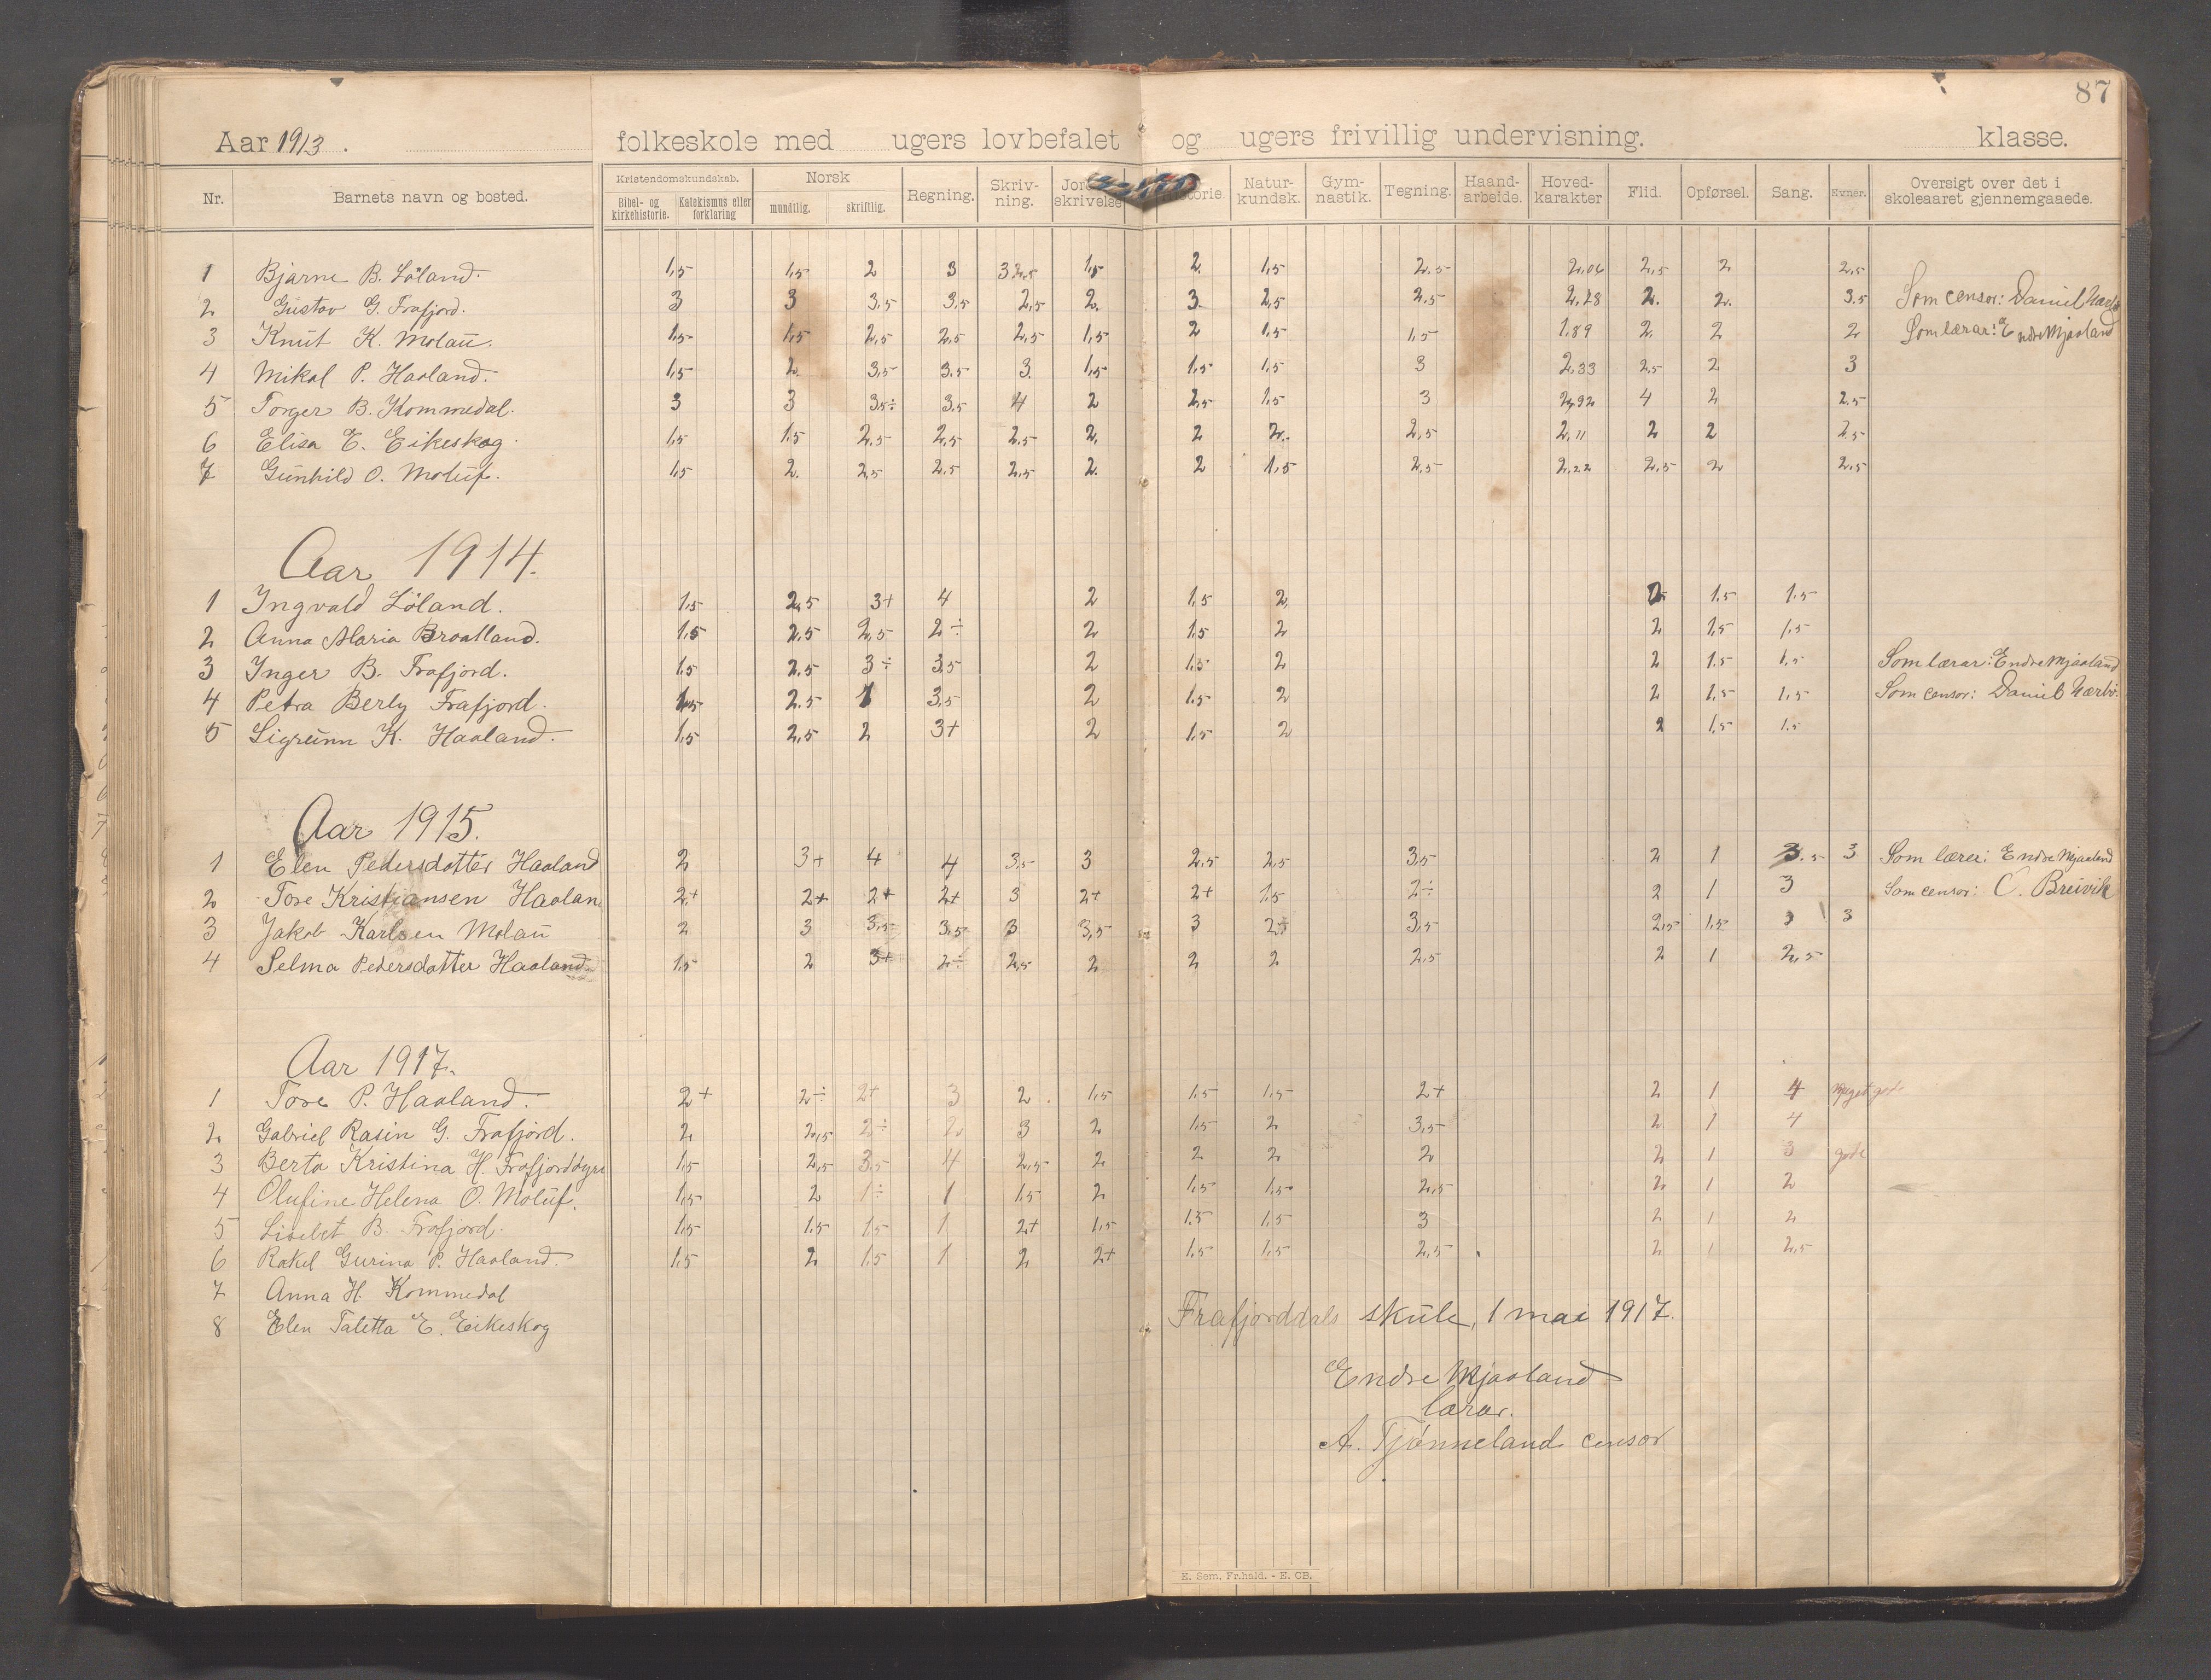 87
Aar 1913. folkeskole med ugers lovbefalet og ugers frivillig undervisning. klasse.
Nr. Barnets navn og bosted. Kristendomskundskab. Bibel- og kirkehistorie. Katekismus eller forklaring Norsk mundtlig. skriftlig. Regning. Skriv-ning. Natur-kundsk. Gym-nastik. Tegning. Haand-arbeide. Hoved-karakter Flid. Opførsel. Sang. Evner. Oversigt over det i skoleaaret gjennemgaaede.
1 Bjarne B. Löland. 1,5 1,5 2 3 3 2,5 1,5 2. 1,5 2.5 2,06 2,5 2 2,5
2 Gustav G. Frafjord. 3 3 3,5 3,5 2,5 2. 3. 2,5 2.5 2,78 2. 2. 3.5 Som censor: Daniel Nærbø
3 Knut K. Molaü. 1,5 1,5 2,5 2,5 2,5 1,5 2 1,5 1,5 1.89 2. 2 2 Som lærar: Endre Mjaaland
4 Mikal P. Haaland. 1,5 2. 3,5 3.5 3. 1,5 1,5 1,5 3 2,33 2,5 2 3
5 Torger B. Kommedal. 3 3 3,5÷ 3,5 4 2 2,5 1,5 3 2,92 4 2 2.5
6 Elisa E. Eikeskog. 1,5 1.5 2.5 2,5 2.5 2. 2 2. 2,5 2,11 2 2 2.5
7 Gunhild O. Moluf. 1,5 2. 2,5 2,5 2,5 2. 2 1,5 2,5 2,22 2,5 2 2,5
Aar 1914.
1 Ingvald Löland. 1,5 2,5 3+ 4 2 1,5 2 2 1.5 1.5
2 Anna Maria Braatland. 1.5 2.5 2,5 2÷ 2 1.5 2 2 1,5 1,5
3 Inger B. Frafjord. 1.5 2.5 3÷ 3,5 2 1,5 2 2 1.5 1,5 Som lærar: Endre Mjaaland
4 Petra Berly Frafjord. 1,5 2.5 1 3,5 2 1,5 2 2 1,5 1,5 Som censor: Daniel Nærbø.
5 Sigrunn K. Haaland. 1,5 2,5 2 3+ 2 1,5 2 2 1,5 1.5
Aar 1915.
1 Elen Pedersdatter Haaland 2 3+ 4 4 3,5 3 2.5 2,5 3,5 2 1 3.5 3 Som lærer: Endre Mjaaland
2 Tore Kristiansen Haalan 2+ 2+ 2+ 2+ 3 2+ 2+ 1,5 2÷ 2 1 3 Som censor: C. Breivik
3 Jakob Karlsen Molaü 2 3 3,5 3,5 3 3,5 3 2+ 3,5 2,5 1,5 3 3
4 Selma Pedersdatter Haaland 1,5 2 3+ 2÷ 2,5 2 2 2 2,5 2 1 2,5
Aar 1917.
1 Tore P. Haaland. 2+ 2÷ 2+ 3 2 1,5 1,5 1,5 2+ 2 1 4 Meget gode
2 Gabriel Rasin G. Frafjord. 2 2,5 2÷ 2 3 2 1,5 2 3,5 2 1 4
3 Berta Kristina H. Frafjordöyra 1,5 2,5 3,5 4 2,5 2 2 2 2 2 1 3 gode
4 Olufine Helena O. Moluf. 1,5 2 1÷ 1 1,5 2 1,5 1,5 2,5 2 1 2
5 Lisebet B. Frafjord. 1,5 1,5 1,5 1 2+ 1,5 1.5 1,5 3 2 1 2
6 Rakel Gurina P. Haaland. 1,5 2 1,5 1 2 2+ 1,5 1,5 2,5 2 1 2,5
7 Anna H. Kommedal
8 Elen Taletta E. Eikeskog
Frafjorddals skule, 1 mai 1917.
Endre Mjaaland
lærar.
A. Tjönneland censor
E. Sem, Fr.hald. - E. CB.